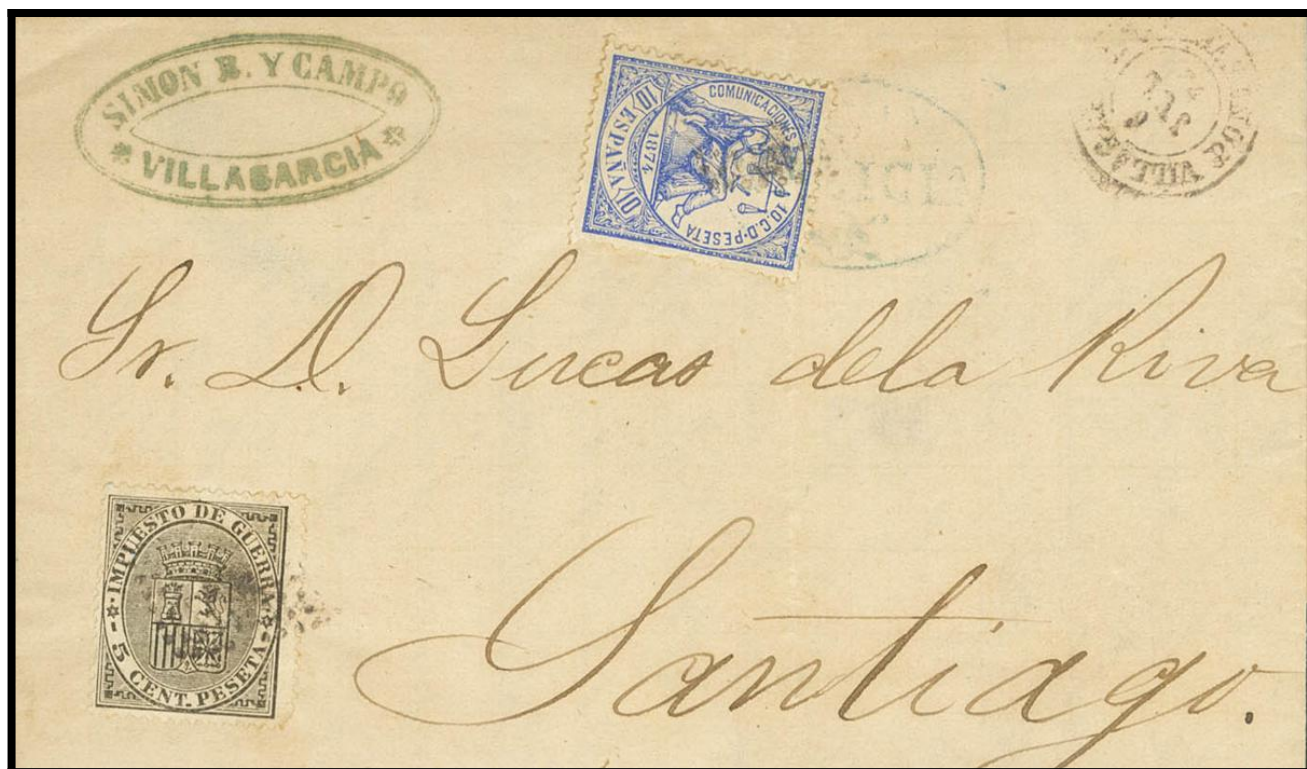 SIMON R. Y CAMPO
VILLAGARCIA
COMUNICACIONES
10 ESPAÑA 10
1874
10 C. D. PESETA
JUL
Sr. D. Lucas dela Riva
IMPUESTO DE GUERRA
5 CENT. PESETA
Santiago.